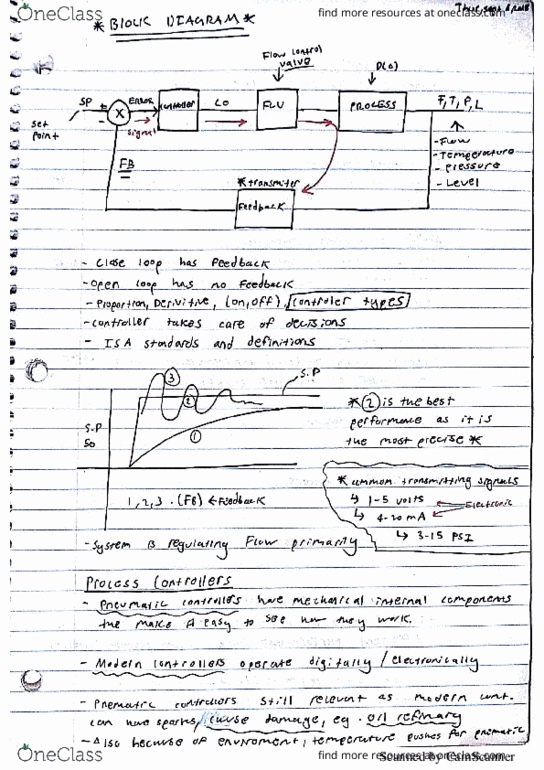 OneClass
find more resources at oneclass.com
* BLOCK DIAGRAM *
Flow control
valve
D(o)
SP
ERROR
controller
CO
FLV
PROCESS
F, T, P, L
set
point
signal
- Flow
- Temperature
- pressure
- Level
FB
* transmiter
Feedback
- Close loop has Feedback
- open loop has no Feedback
- Proportion, Derivitive, (on, off), controler types
- controller takes care of decisions
- ISA standards and definitions
3
S.P
2
1
S.P
50
* 2 is the best
performance as it is
the most precise *
1, 2, 3 . (FB) ← Feedback
* common transmitting signals
↳ 1-5 volts
Electronic
↳ 4-20 mA
↳ 3-15 PSI
- System is regulating Flow primarily
Process Controllers
- Pneumatic controllers have mechanical internal components
the make it easy to see how they work.
- Modern controllers operate digitally / electronically
- Pnematic controllers still relevant as modern cont.
can have sparks, cause damage, eg. oil refinary
- Also because of enviroment, temperature pushes for pnematic
OneClass
find more resources at oneclass.com
Scanned by CamScanner